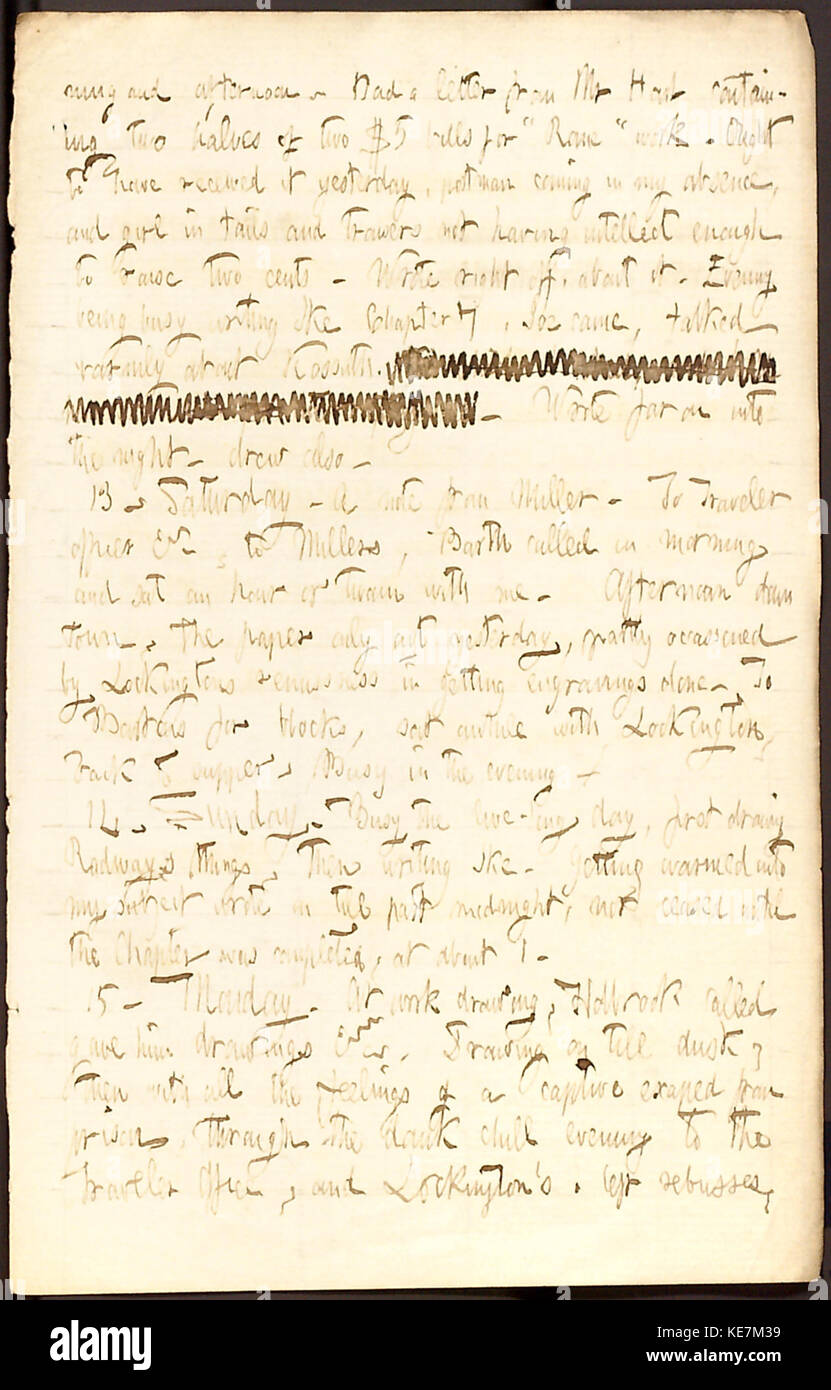 ning and afternoon. Had a letter from Mr Hart contain-
ing two halves of two $5 bills for "Rome" work. Ought
to have received it yesterday, postman coming in my absence,
and girl in tails and trowsers not having intellect enough
to raise two cents - Wrote right off, about it. Evening
being busy writing Ske Chapter 7, Joe came, talked
about Kossuth.
- Wrote far on into
the night - drew also -
13 - Saturday - A note from Miller - To Traveler
office &c, to Millers, Barth called in morning
and sat an hour or twain with me - Afternoon down
town, the paper only out yesterday, partly occasioned
by Lockingtons remissness in getting engravings done -, To
for blocks, sat awhile with Lockington,
back to supper, Busy in the evening -
14. Sunday. Busy the live-long day, first drawing
Rodways things, then writing Ske - Getting warmed into
my subject wrote on till past midnight, nor ceased until
the Chapter was completed, at about 1 -
15 - Monday. At work drawing, Holbrook called
gave him drawings &c. Drawing on till dusk,
then with all the feelings of a captive escaped from
prison, through the dank chill evening to the
Traveler Office, and Lockington's. left rebusses,
alamy
Image ID: KE7M39
www.alamy.com